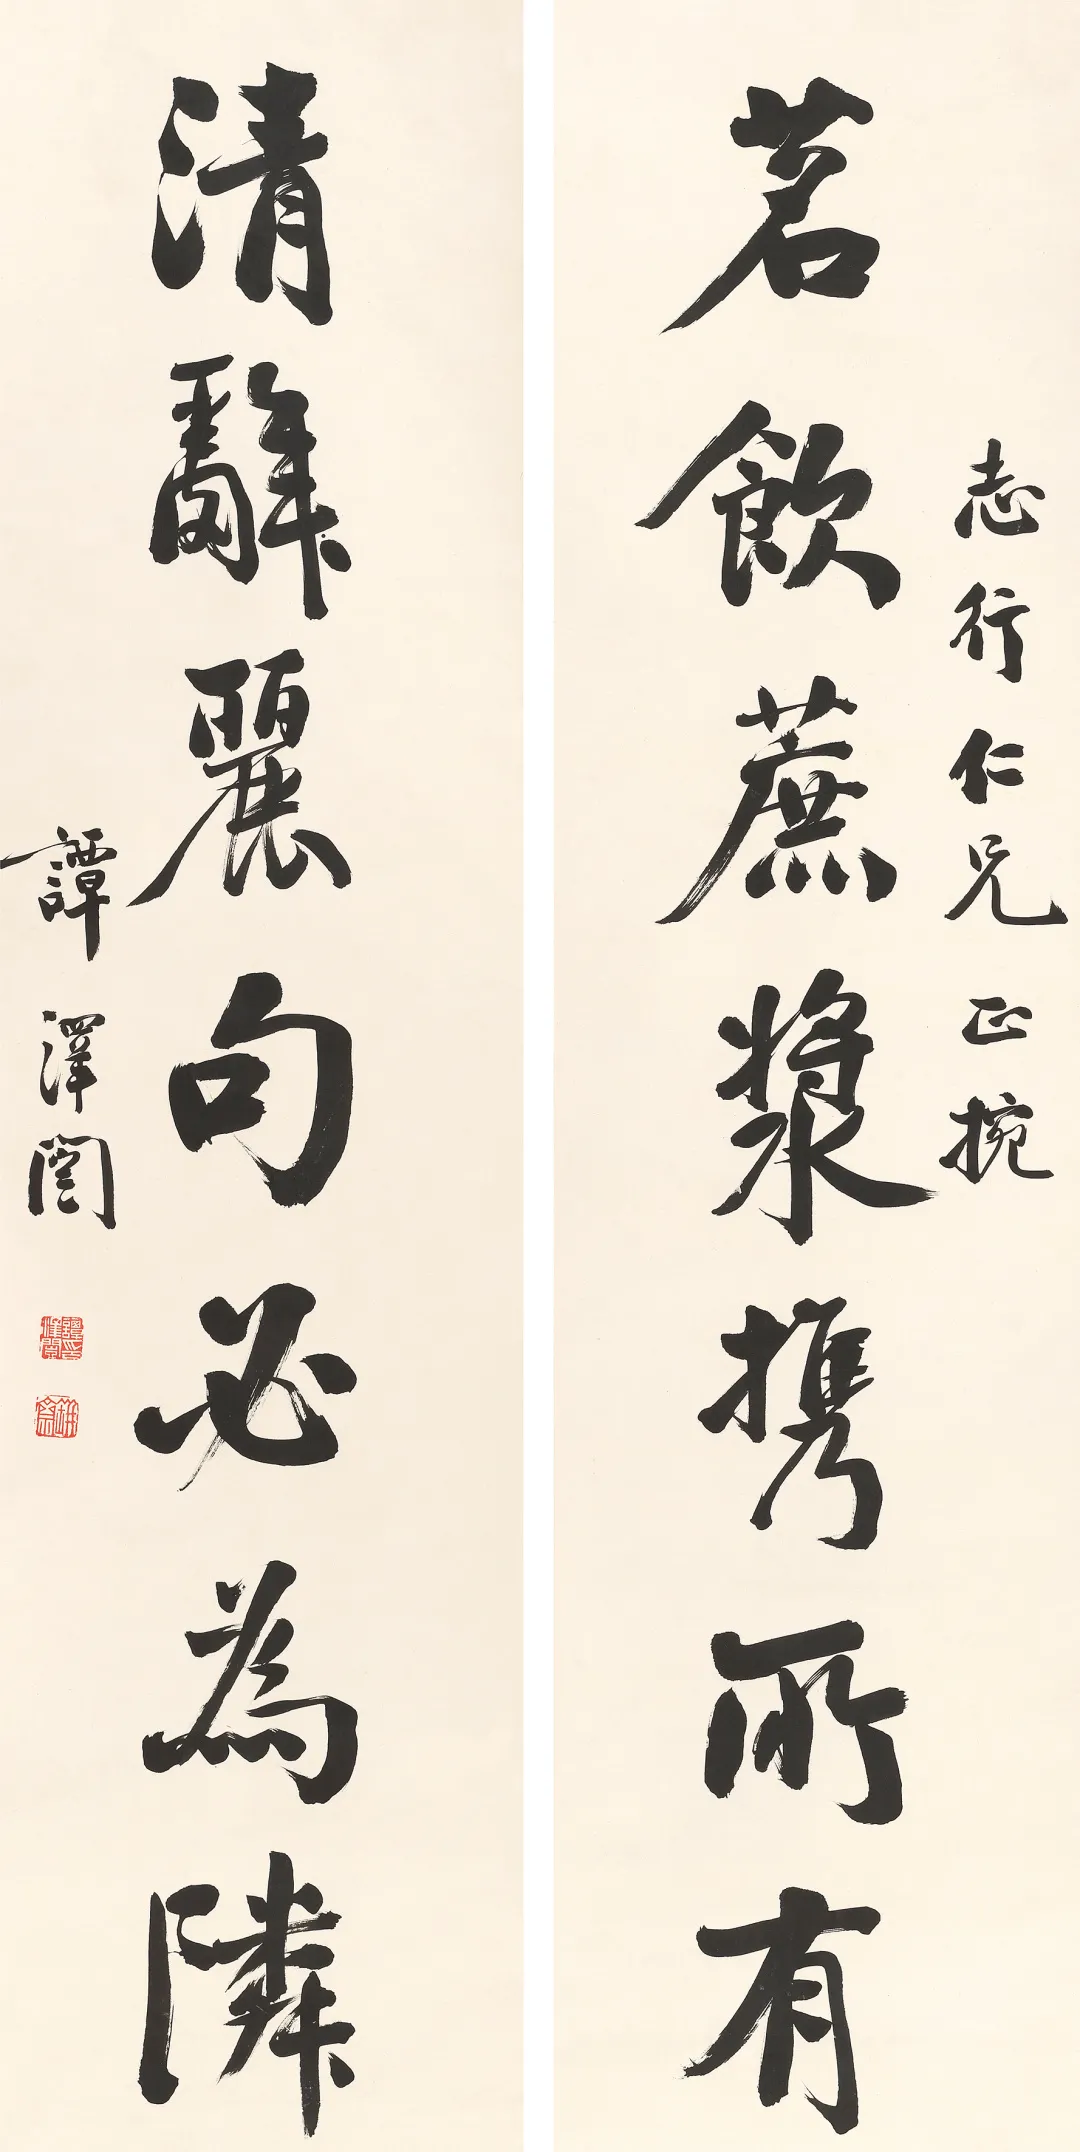 茗飲蔗漿攜所有
志行仁兄正捥
清辭麗句必為隣
譚澤闓